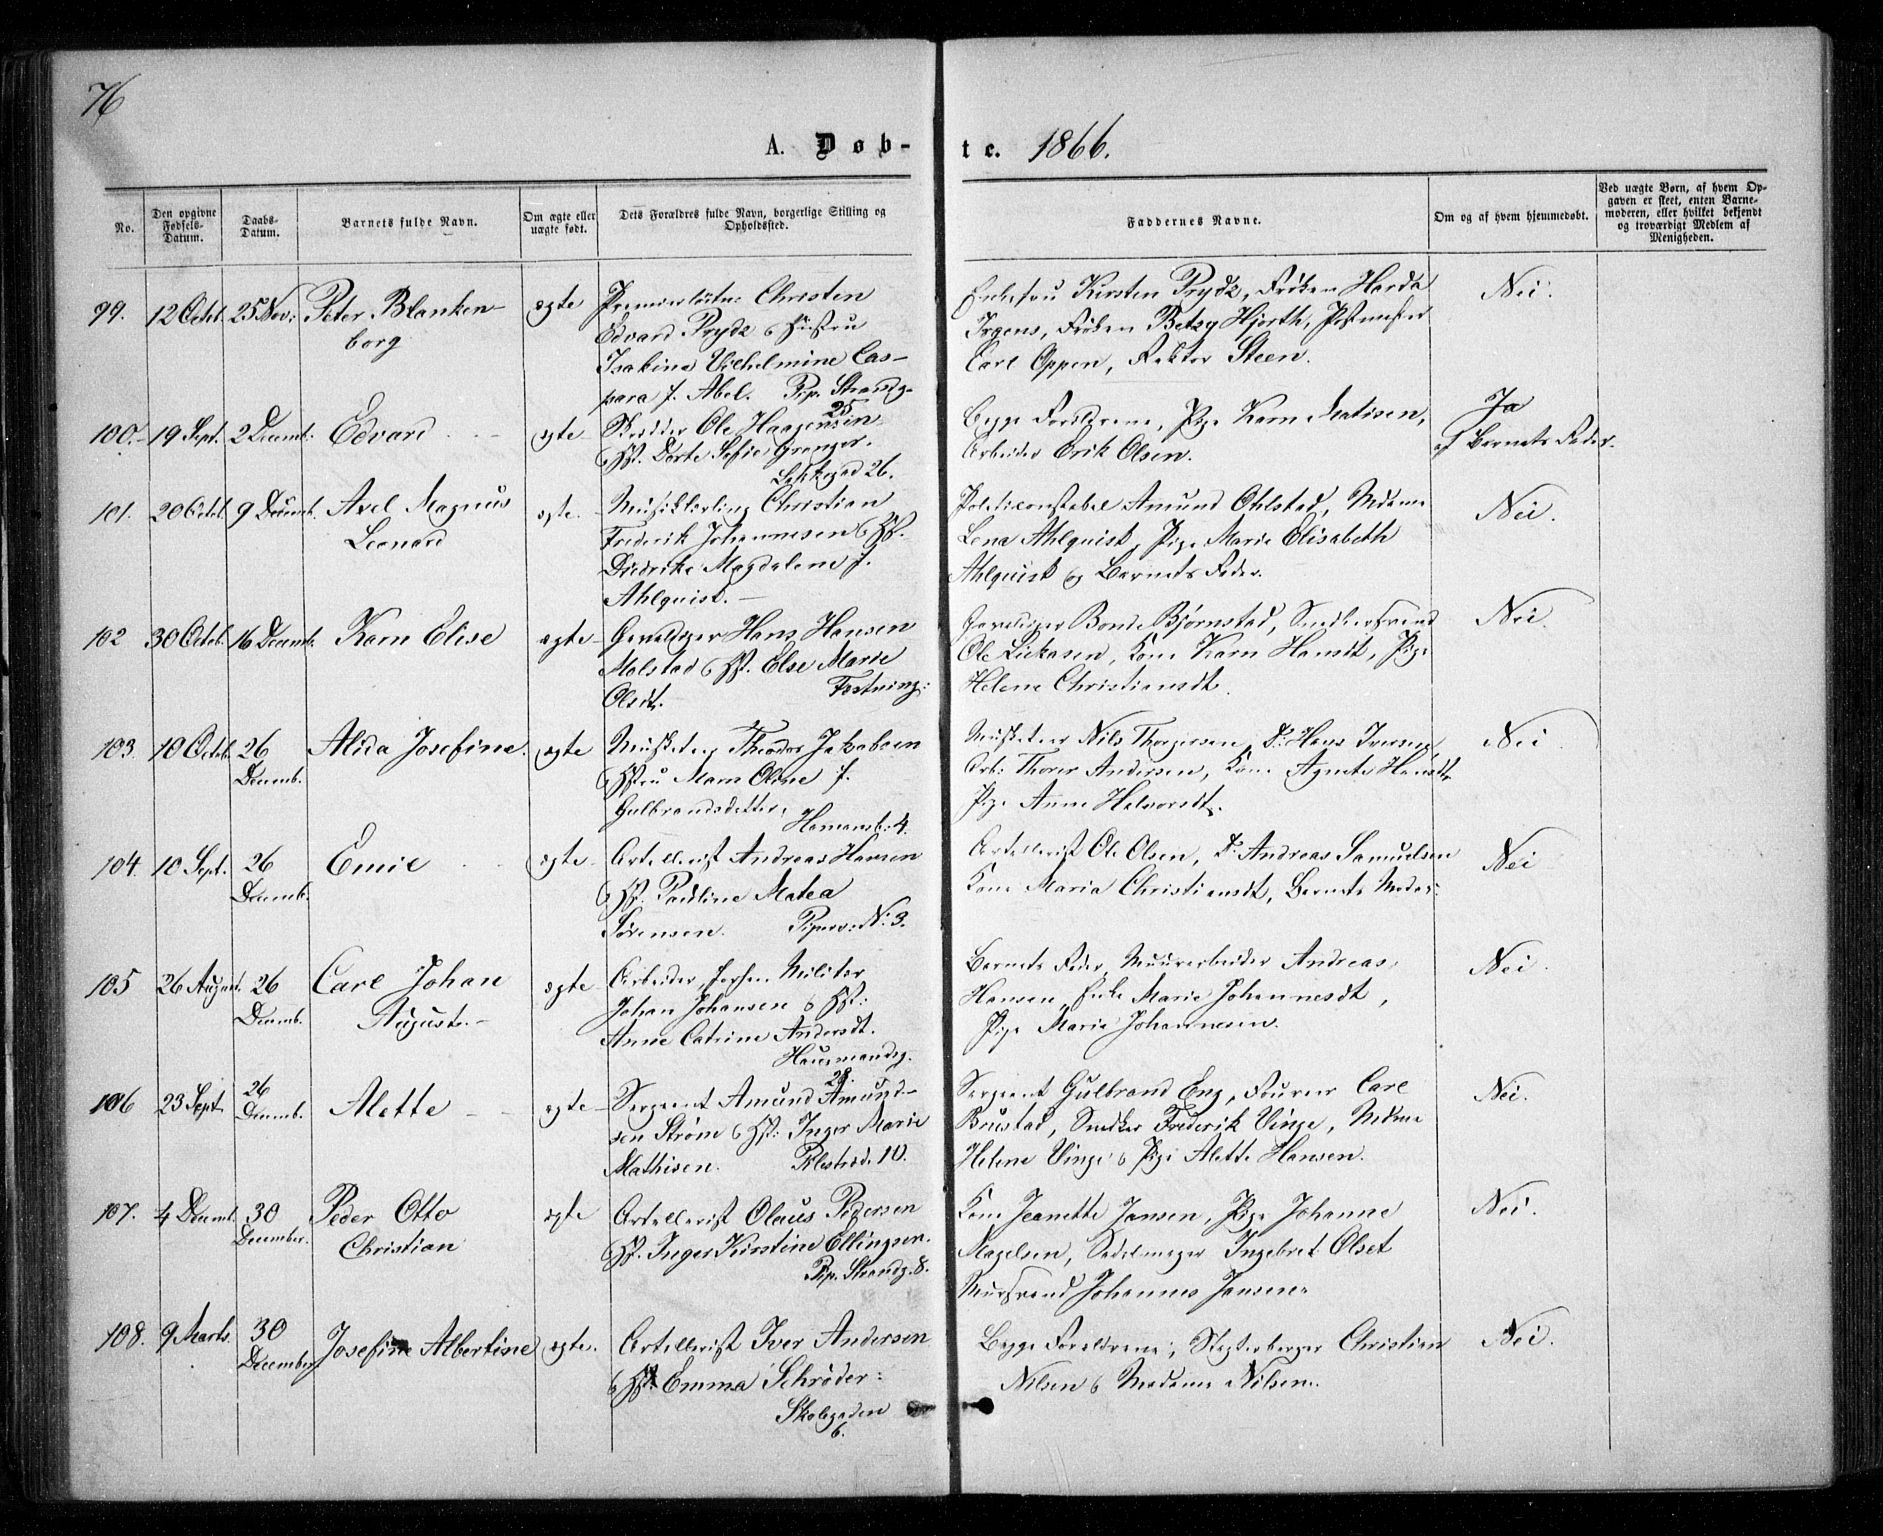 76
A. Døb-
te. 1866.
No.
Den opgivne Fødsels-Datum.
Daabs-Datum.
Barnets fulde Navn.
Om ægte eller uægte født.
Dets Forældres fulde Navn, borgerlige Stilling og Opholdssted.
Faddernes Navne.
Om og af hvem hjemmedøbt.
Ved uægte Børn, af hvem Op-
gaven er skeet, enten Barne-
moderen, eller hvilket bekjendt
og troværdigt Medlem af
Menigheden.
99. 12 Octbr. 25 Nov: Peter Blanken-
borg
ægte
Premierløitn: Christen
Edvard Prydz & Hustru
Isakina Vilhelmine Cas-
para f. Abel. Pip. Strandg.
25
Enkefru Kirsten Prydz, Frøken Harda
Irgens, Frøken Betzy Hjorth, Postmester
Carl Oppen, Rektor Steen.
Nei.
100. 19 Sept. 2 Decemb: Edvard
ægte
Skrædder Ole Haagensen
& Hst. Dorte Sofie Grenger.
26.
Begge Forældrene, Pige Karn Matisen,
Arbeider Erik Olsen.
Ja
af Barnets Fader.
101. 20 Octbr. 9 Decemb. Axel Magnus
Leonard
ægte
Musiklærling Christian
Frederik Johannesen & Hst.
Didrike Magdalene f.
Ahlquist.
Politiconstabel Amund Ohlstad, Mdme
Lena Ahlquist, Pige Marie Elisabeth
Ahlquist og Barnets Fader.
Nei.
102 30 Octob. 16 Decemb. Karn Elise
ægte
Gevaldiger Hans Hansen
Molstad & Hst. Else Marie
Olsdt. Fæstning:
Gevaldiger Bonde Bjørnstad, Snedkersvend
Ole Lukasen, Kone Karn Hansdt, Pige
Helene Christiansdt.
Nei.
103. 10 Octob. 26 Decemb. Alida Josefine.
ægte
Musketeer Theodor Jakobsen
& Hstru Maren Oline f.
Gulbrandsdatter, Hamansb: 4.
Musketeer Nils Thorgersen, Do. Hans Iversen,
Arb: Thorer Andersen, Kone Agnete Hansdt
Pige Anne Halvorsdt.
Nei
104. 10 Sept. 26 Decemb. Emil
ægte
Artellerist Andreas Hansen
& Hst. Pauline Matea
Sørensen. Piperv: N: 3.
Artellerist Ole Olsen, Do. Andreas Samuelsen
Kone Maria Christiansdt, Barnets Moder:
Nei
105 26 August 26 Decemb. Carl Johan
August.
ægte
Arbeider, forhen Militær
Johan Johansen & Hst:
Anne Catrine Andersdt.
Hausmandsg.
28.
Barnets Fader, Muurarbeider Andreas
Hansen, Enke Marie Johannesdt,
Pige Marie Johannesen.
Nei.
106 23 Sept. 26 Decemb. Alette
ægte
Sergeant Amund Amund-
sen Strøm & Hst: Inger Marie
Mathisen. Pilestrædet 10.
Sergeant Gulbrand Eng, Fourer Carl
Brustad, Snedker Frederik Vinge, Mdme
Helene Vinge & Pige Alette Hansen.
Nei.
107. 4 Decemb. 30 December. Peder Otto
Christian
ægte
Artellerist Olaus Pedersen
& Hst. Inger Kirstine Ellingsen.
Pip. Strandg. 8.
Kone Jeanette Jansen, Pige Johanne
Magelsen, Sadelmager Ingebret Olset
Mursvend Johannes Jansen
Nei.
108. 9 Marts 30 December Josefine Albertine
ægte.
Artellerist Iver Andersen
& Hst. Emma Schrøder:
Skolegaden
6.
Begge Forældrene, Christian
Nilsen & Madame Nilsen.
Nei.